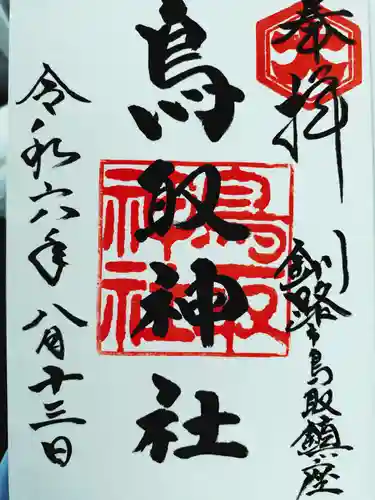 奉拝
釧路市鳥取鎮座
鳥取神社
鳥取神社
令和六年八月十三日